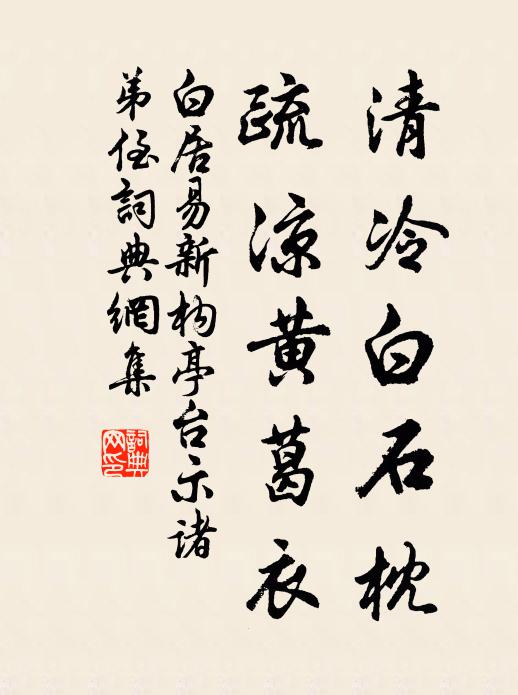 清冷白石枕
疏涼黄葛衣
白居易新构亭台示諸
弟侄詞典網集
詞典网印